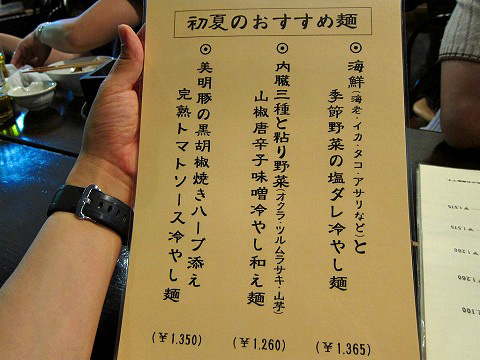 初夏のおすすめ麺
◎海鮮(海老・イカ・タコ・アサリなど)と
季節野菜の塩ダレ冷やし麺
(¥1.365)
◎内臓三種と粘り野菜(オクラ・ツルムラサキ・山芋)
山椒唐辛子味噌冷やし和え麺
(¥1.260)
◎美明豚の黒胡椒焼きハーブ添え
完熟トマトソース冷やし麺
(¥1.350)